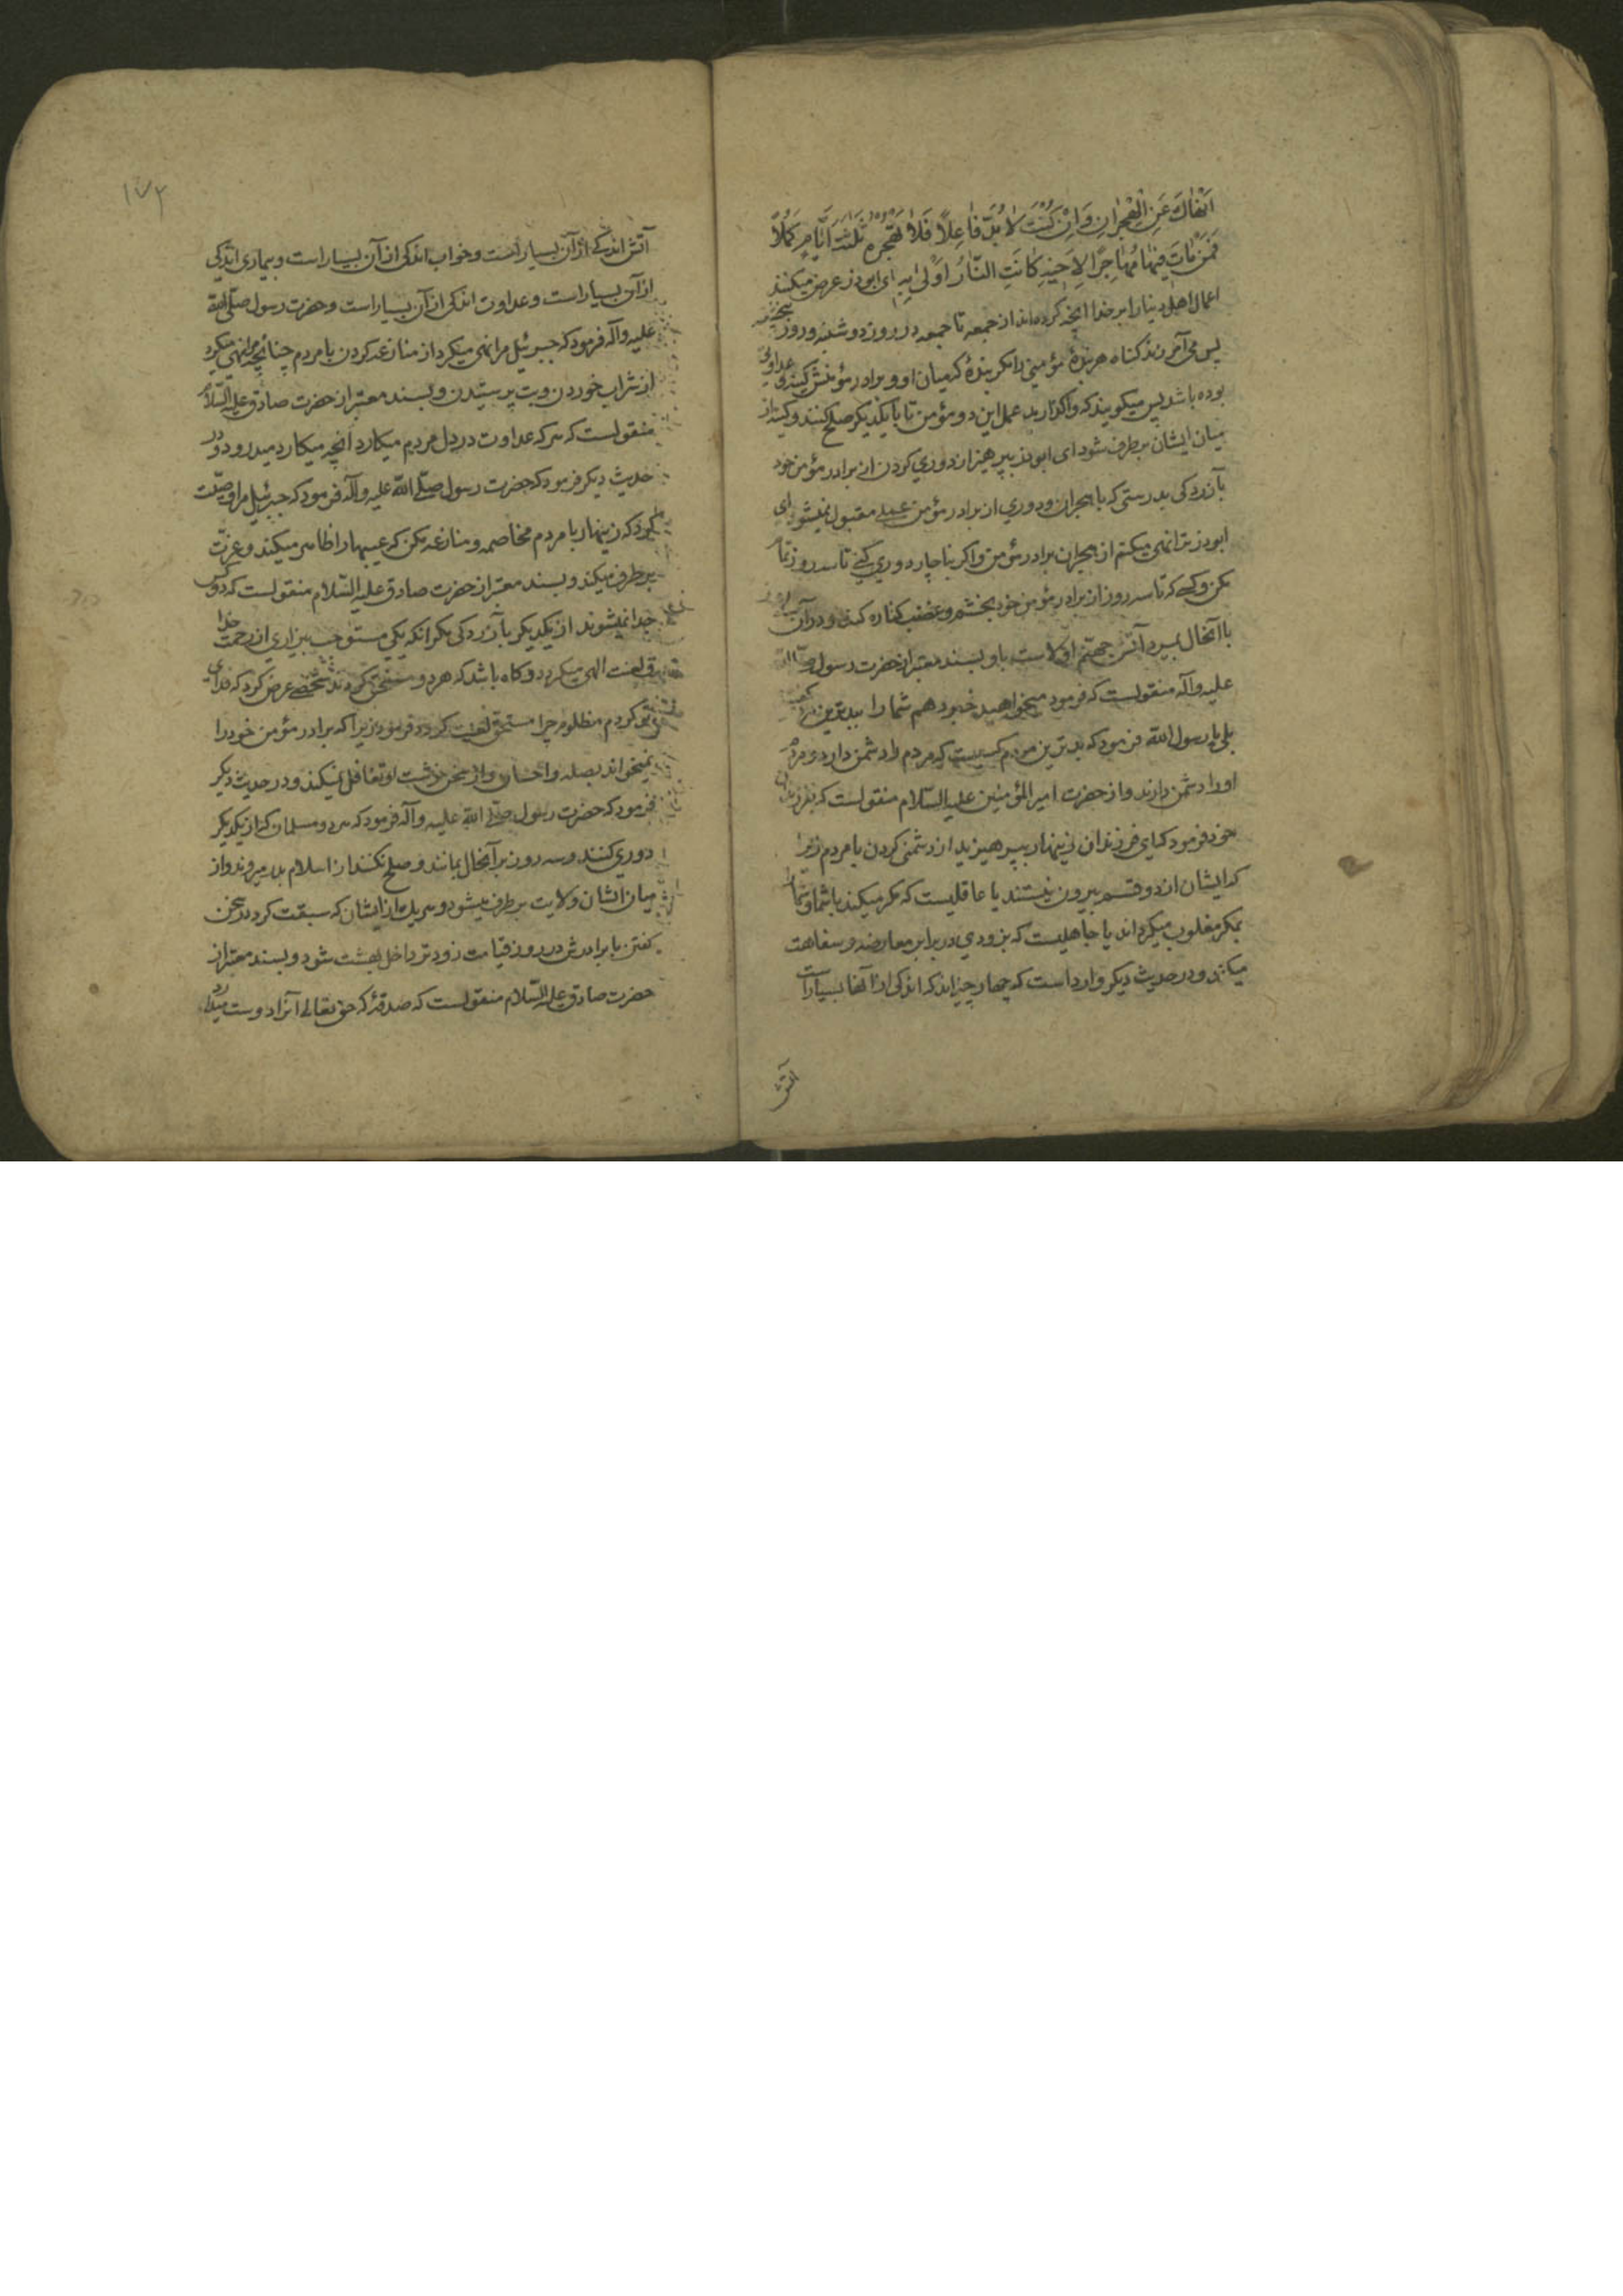 اَنْهٰاكَ عَنِ الْهِجْرٰانِ وَاِنْ كُنْتَ لاٰبُدَّ فٰاعِلاً فَلاٰ تَهْجُرْهُ ثَلٰثَةَ اَيّٰامٍ كَمَلاً
فَمَنْ مٰاتَ فيهٰا مُهٰاجِرًا لِاَخيهِ كٰانَتِ النّٰارُ اَوْلىٰ بِهِ ای ابوذر عرض میکنند
اعمال اهل دنیا را بر خدا انچه کرده‌اند از جمعه تا جمعه در روز دوشنبه و روز پنجشنبه
پس می آمرزند کناه هر بندهٔ مؤمنی را مکر بندهٔ که میان او و برادر مؤمنش کینه و عداوتی
بوده باشد پس میکویند که واکذارید عمل این دو مؤمن تا با یکدیکر صلح کنند و کینه از
میان ایشان برطرف شود ای ابوذر بپرهیز از دوري کردن از برادر مؤمن خود
بآزردکی بدرستی که با هجران و دوري از برادر مؤمن عمل مقبول نمیشود ای
ابوذر ترا نهی میکنم از هجران برادر مؤمن و اکر بناچار دوري کنی تا سه روز تمام
مکن و کسی که تا سه روز از برادر مؤمن خود بخشم و غضب کناره کند و در آن
با آنحال بمیرد آتش جهنم اولاست باو و بسند معتبر از حضرت رسول صلی الله
علیه و آله منقولست که فرمود میخواهید خبر دهم شما را ببدترین
بلی یا رسول الله فرمود که بدترین مردم کسیست که مردم را دشمن دارد و مردم
او را دشمن دارند و از حضرت امیر المؤمنین علیه السّلام منقولست که بفرزندان
خود فرمود که ای فرزندان زینهار بپرهیزید از دشمنی کردن با مردم زیرا
که ایشان از دو قسم بیرون نیستند یا عاقلیست که مکر میکند با شما و شما را
بمکر مغلوب میکرداند یا جاهلیست که بزودي در برابر معارضه و سفاهت
میکند و در حدیث دیکر وارد است که چهار چیزاند که اندکی از آنها بسیار است
آتش
۱۷۲
آتش اندکی از آن بسیار است و خواب اندکی از آن بسیار است و بیماری اندکی
از آن بسیار است و عداوت اندکی از آن بسیار است و حضرت رسول صلّی الله
علیه و آله فرمود که جبرئیل مرا نهی میکرد از منازعه کردن با مردم چنانچه مرا نهی میکرد
از شراب خوردن و بت پرستیدن و بسند معتبر از حضرت صادق علیه السّلام
منقولست که هر که عداوت در دل مردم میکارد انچه میکارد میدرود و در
حدیث دیکر فرمود که حضرت رسول صلّی الله علیه و آله فرمود که جبرئیل مرا وصیّت
کرد که زینهار با مردم مخاصمه و منازعه مکن که عیبها را ظاهر میکند و عزت
برطرف میکند و بسند معتبر از حضرت صادق علیه السّلام منقولست که دو کس
جدا نمیشوند از یکدیکر بآزردکی مکر انکه یکی مستوجب بیزاري از رحمت خدا
و لعنت الهی میکردد و کاه باشد که هر دو مستحق کردند شخصی عرض کرد که فدای
تو کردم مظلوم چرا مستحق لعنت کردد فرمود زیرا که برادر مؤمن خود را
نمیخواند بصله و احسان و از سخن زشت او تغافل نمیکند و در حدیث دیکر
فرمود که حضرت رسول صلّی الله علیه و آله فرمود که هر دو مسلمان که از یکدیکر
دوري کنند و سه روز بر آنحال بمانند و صلح نکنند از اسلام بدر میروند و از
میان ایشان ولایت برطرف میشود و هر یک از ایشان که سبقت کردند بسخن
کفتن با برادرش در روز قیامت زودتر داخل بهشت شود و بسند معتبر از
حضرت صادق علیه السّلام منقولست که صدقهٔ که حق تعالی آنرا دوست میدارد